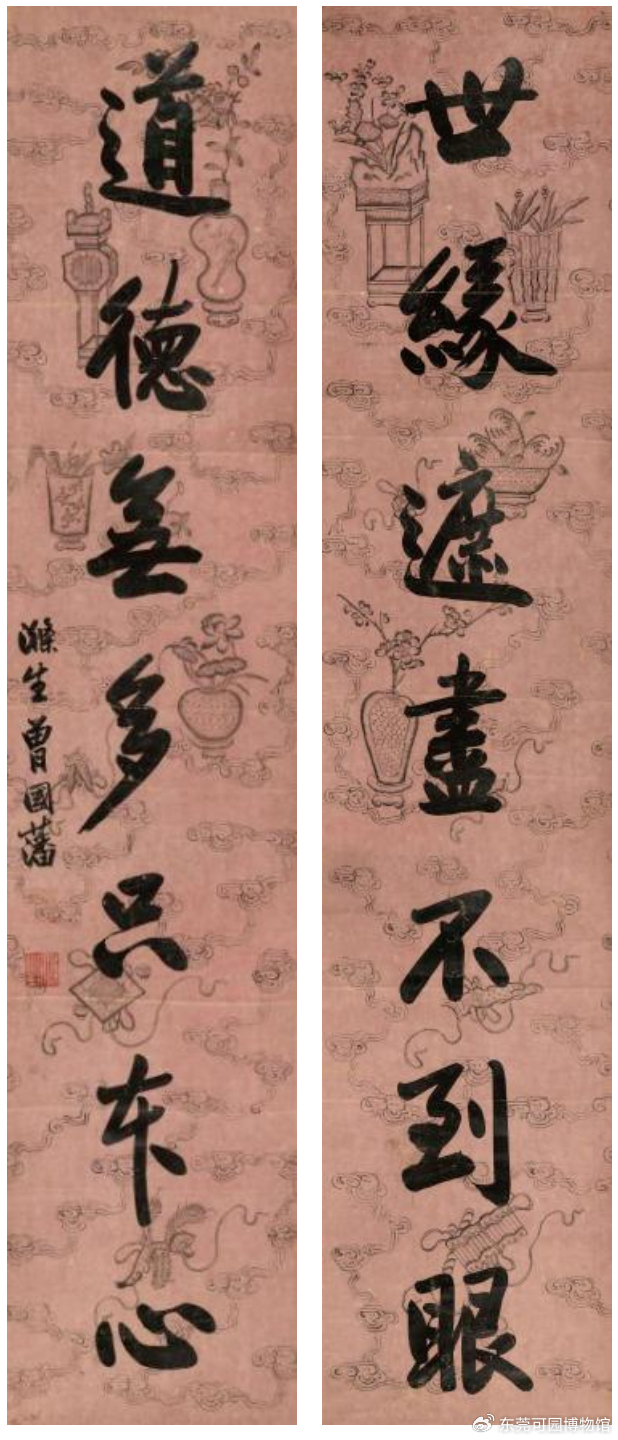 世緣遮盡不到眼
道德無多只本心
滌生曾國藩
东莞可园博物馆